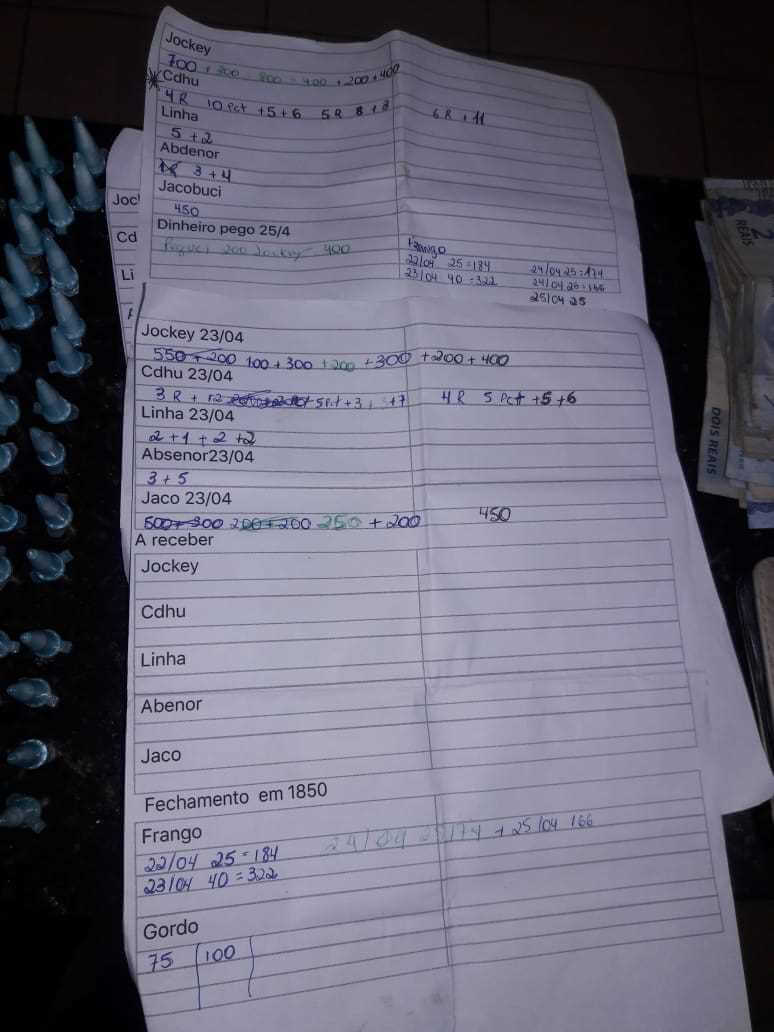 Jockey
700 + 200 800 - 400 + 200 + 400
Cdhu
4 R 10 Pct + 5 + 6 5 R 8 + 3 6 R + 11
Linha
5 + 2
Abdenor
3 + 4
Jacobuci
450
Dinheiro pego 25/4
Peguei 200 Jockey 400
Frango
22/04 25 = 184 24/04 25 = 174
23/04 40 = 322 24/04 25 = 166
25/04 25
Joc
Cd
Li
Jockey 23/04
550 + 200 100 + 300 + 200 + 300 + 200 + 400
Cdhu 23/04
3 R + 12 5 Pct + 3 + 7 4 R 5 Pct + 5 + 6
Linha 23/04
2 + 1 + 2 + 2
Absenor23/04
3 + 5
Jaco 23/04
500 + 300 200 + 200 250 + 200 450
A receber
Jockey
Cdhu
Linha
Abenor
Jaco
Fechamento em 1850
Frango
24/04 25/174 + 25/04 166
22/04 25 = 184
23/04 40 = 322
Gordo
75 100
2
REAIS
DOIS REAIS